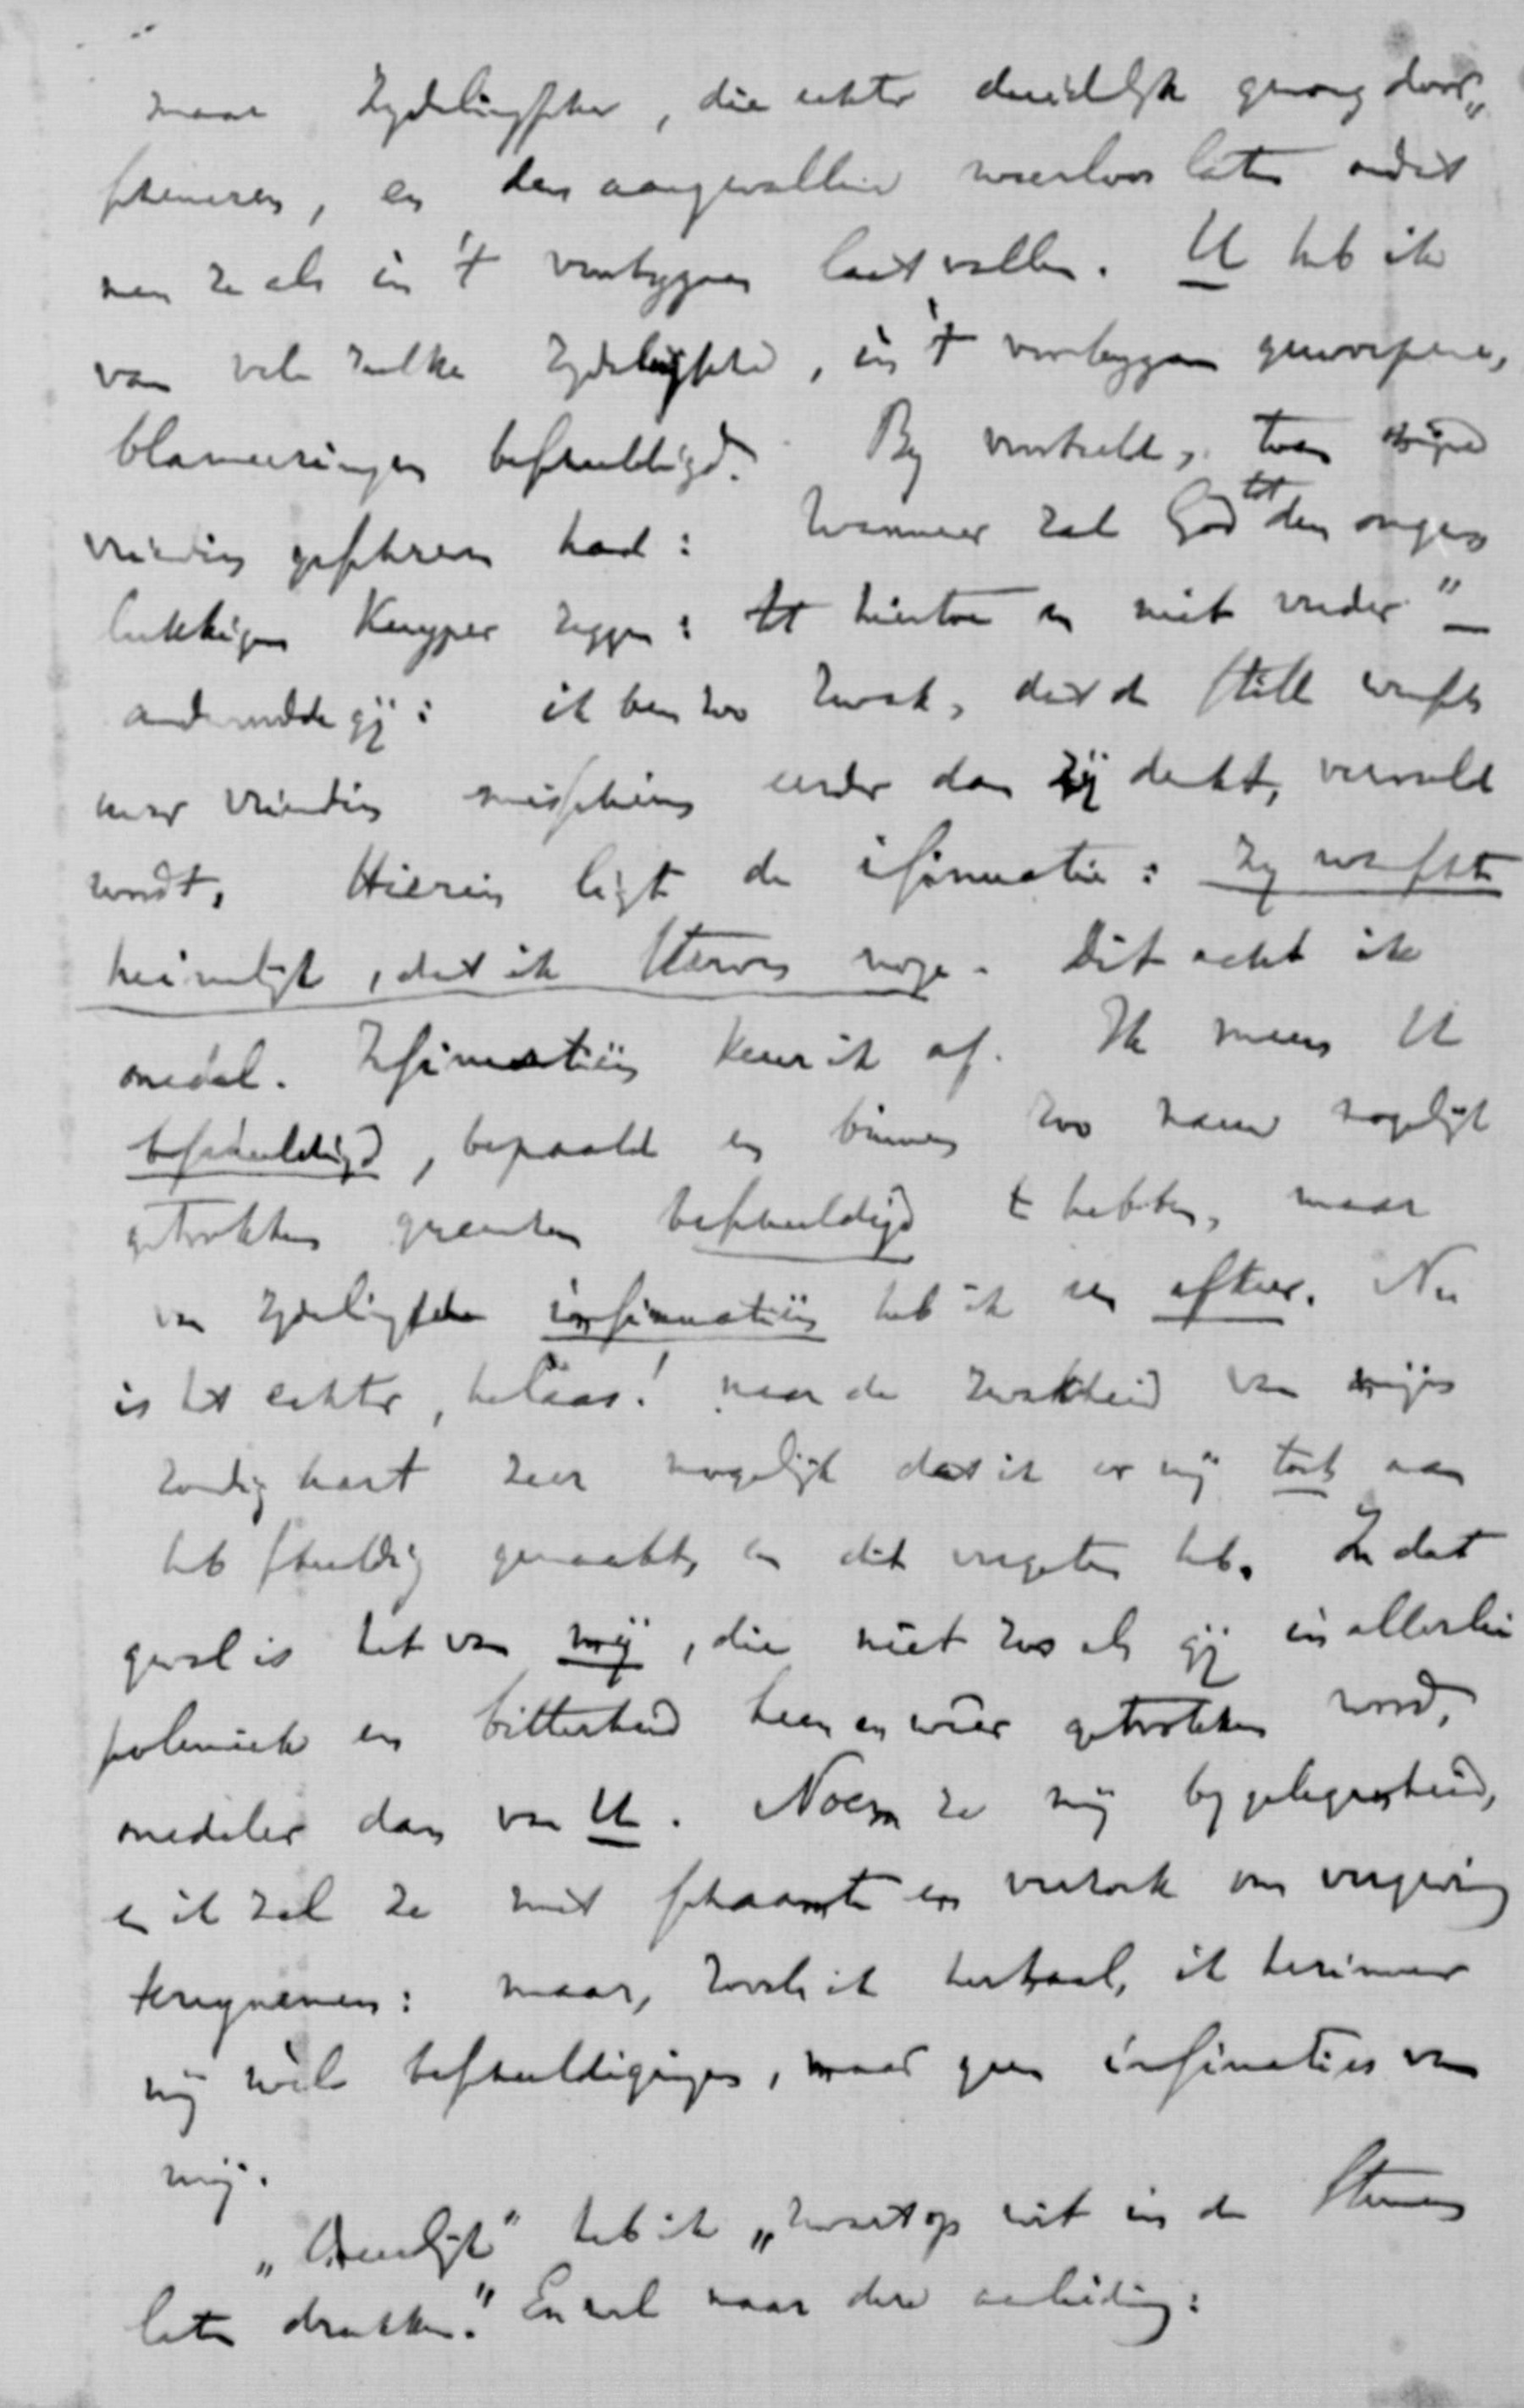 maar zydelingsche, die echter duidelijk genoeg door„
schemeren, en den aangevallene weerloos laten omdat
men ze als in 't voorbygaan laat vallen. U heb ik
van vele zulke zydelingsche, in 't voorbygaan geworpene,
blameeringen beschuldigd. By voorbeeld, toen mijne
vriendin geschreven had: Wanneer zal God tot den onge„
lukkigen Kuyper zeggen: tot hiertoe en niet verder"_
antwoordde gij: ik ben zoo zwak, dat de stille wensch
uwer vriendin misschien eerder dan zij denkt, vervuld
wordt. Hierin ligt de insinuatie: zy wenscht
heimelijk, dat ik sterven moge. Dit acht ik
onedel. Insinuatiën keur ik af. Ik meen U
beschuldigd, bepaald en binnen zoo nauw mogelijk
getrokken grenzen beschuldigd te hebben, maar
van zydelingsche insinuatiën heb ik een afkeer. Nu
is het echter, helaas! naar de zwakheid van mijn
zondig hart zeer mogelijk dat ik er mij toch aan
heb schuldig gemaakt, en dit vergeten heb. In dat
geval is het van mij, die niet zoo als gij in allerlei
polemiek en bitterheid heen en weer getrokken word,
onedeler dan van U. Noem ze mij by gelegenheid,
en ik zal ze met schaamte en verzoek om vergeving
terugnemen: maar, zooals ik herhaal, ik herinner
mij wel beschuldigingen, maar geen insinuaties van
mij.
heb ik „zwart op wit in de Stemmen
laten drukken." En wel naar deze aanleiding: